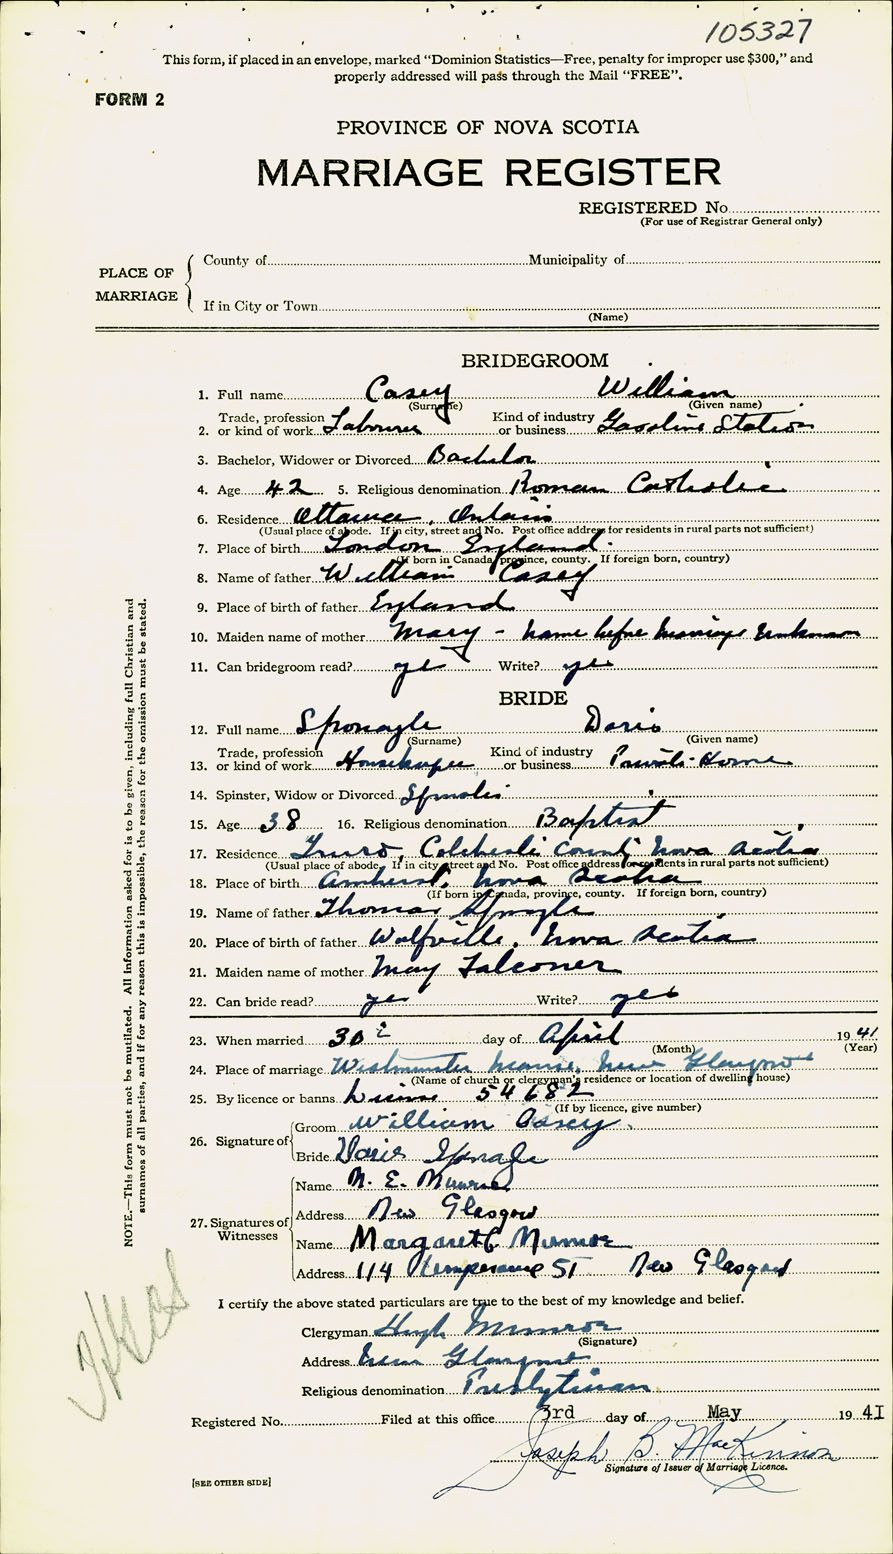 105327
This form, if placed in an envelope, marked "Dominion Statistics—Free, penalty for improper use $300," and
properly addressed will pass through the Mail "FREE".
FORM 2
PROVINCE OF NOVA SCOTIA
MARRIAGE REGISTER
REGISTERED No.
(For use of Registrar General only)
PLACE OF MARRIAGE
County of Municipality of
If in City or Town
(Name)
BRIDEGROOM
1. Full name Casey William
(Surname) (Given name)
2. Trade, profession or kind of work Labourer Kind of industry or business Gasoline Station
3. Bachelor, Widower or Divorced Bachelor
4. Age 42 5. Religious denomination Roman Catholic
6. Residence Ottawa, Ontario
(Usual place of abode. If in city, street and No. Post office address for residents in rural parts not sufficient)
7. Place of birth London England.
(If born in Canada, province, county. If foreign born, country)
8. Name of father William Casey
9. Place of birth of father England
10. Maiden name of mother Mary - name before marriage unknown
11. Can bridegroom read? yes Write? yes
BRIDE
12. Full name Sponagle Doris
(Surname) (Given name)
13. Trade, profession or kind of work Housekeeper Kind of industry or business Private Home
14. Spinster, Widow or Divorced Spinster
15. Age 38 16. Religious denomination Baptist
17. Residence Truro, Colchester County Nova Scotia
(Usual place of abode. If in city street and No. Post office address for residents in rural parts not sufficient)
18. Place of birth Amherst, Nova Scotia
(If born in Canada, province, county. If foreign born, country)
19. Name of father Thomas Sponagle
20. Place of birth of father Wolfville, Nova Scotia
21. Maiden name of mother May Falconer
22. Can bride read? yes Write? yes
23. When married 30 day of April 1941
(Month) (Year)
24. Place of marriage Westminster Manse, New Glasgow
(Name of church or clergyman's residence or location of dwelling house)
25. By licence or banns License 54682
(If by licence, give number)
26. Signature of
Groom William Casey.
Bride Doris Sponagle
27. Signatures of Witnesses
Name N. E. Munroe
Address New Glasgow
Name Margaret C Munroe
Address 114 Temperance ST New Glasgow
I certify the above stated particulars are true to the best of my knowledge and belief.
Clergyman Hugh Munroe
(Signature)
Address New Glasgow
Religious denomination Presbyterian
Registered No. Filed at this office 3rd day of May 1941
Joseph B. MacKinnon
Signature of Issuer of Marriage Licence.
[SEE OTHER SIDE]
NOTE.—This form must not be mutilated. All information asked for is to be given, including full Christian and
surnames of all parties, and if for any reason this is impossible, the reason for the omission must be stated.